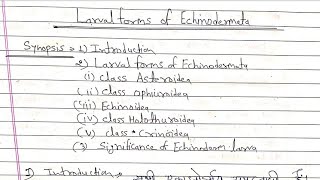 Larval forms of Echinodermata
Synopsis → 1) Introduction
2) Larval forms of Echinodermata
(i) Class Asteroidea
(ii) Class ophiuroidea
(iii) Echinoidea
(iv) class Holothuroidea
(v) class • Crinoidea
3) Significance of Echinoderm larva
1) Introduction →